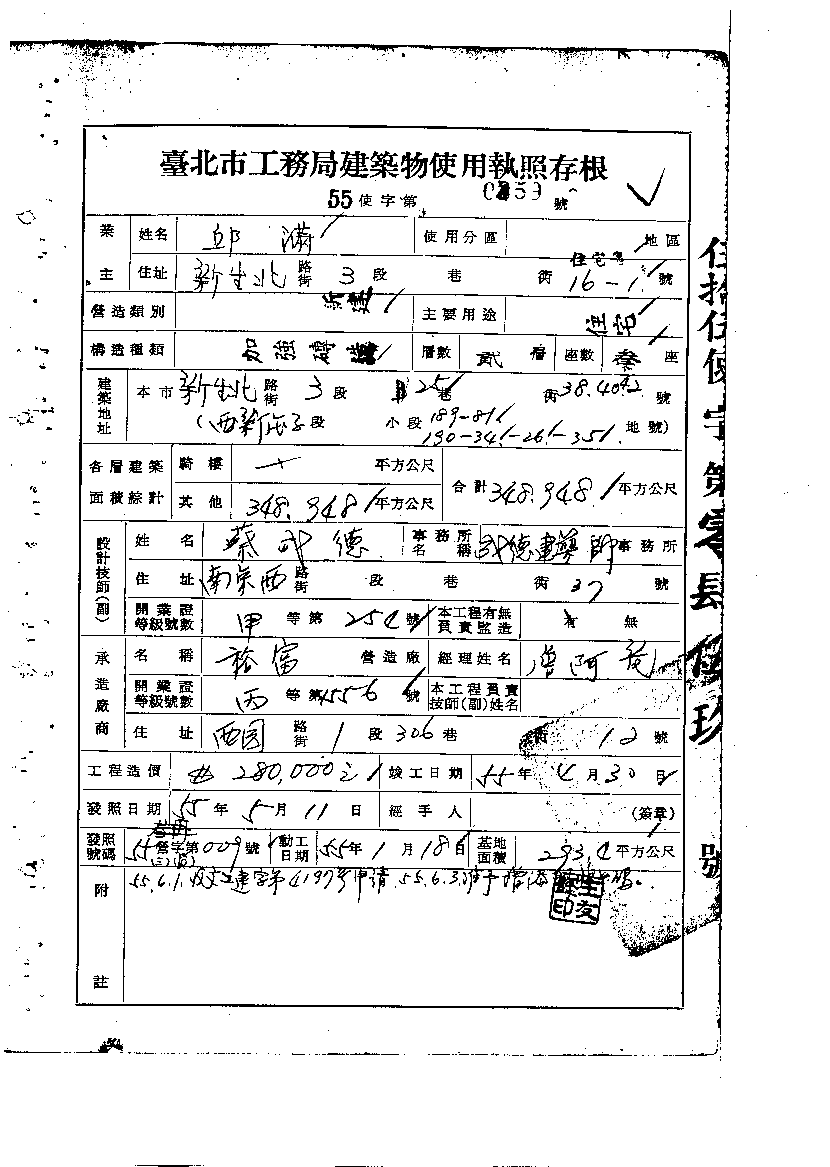 臺北市工務局建築物使用執照存根
55使字第0459號
業主 姓名 邱滿 使用分區 住宅 地區
住址 新生北路街3段 巷 街16-1號
營造類別 新建 主要用途 住宅
構造種類 加強磚造 層數 貳層 座數 叁座
建築地址 本市新生北路街3段 25巷 街38.40.42號
(西新庄子段 小段 189-81 地號)
190-34-26-35
各層建築面積綜計 騎樓 平方公尺 合計 348.948平方公尺
其他 348.948平方公尺
設計技師(副) 姓名 蔡武德 事務所名稱 武德建築師事務所
住址 南京西路街 段 巷 街37號
開業證等級號數 甲等第254號 本工程有無負責監造 有 無
承造廠商 名稱 裕富 營造廠 經理姓名 曾阿
開業證等級號數 丙等第556號 本工程負責技師(副)姓名
住址 西园路街1段306巷 街12號
工程造價 280,000元 竣工日期 55年4月30日
發照日期 55年5月11日 經手人 (簽章)
發照號碼 55營字第009號 動工日期 55年1月18日 基地面積 293.4平方公尺
附註 55.6.1.收文工建字第4197号申請.55.6.3.准予
伍拾伍使字第零肆伍玖號